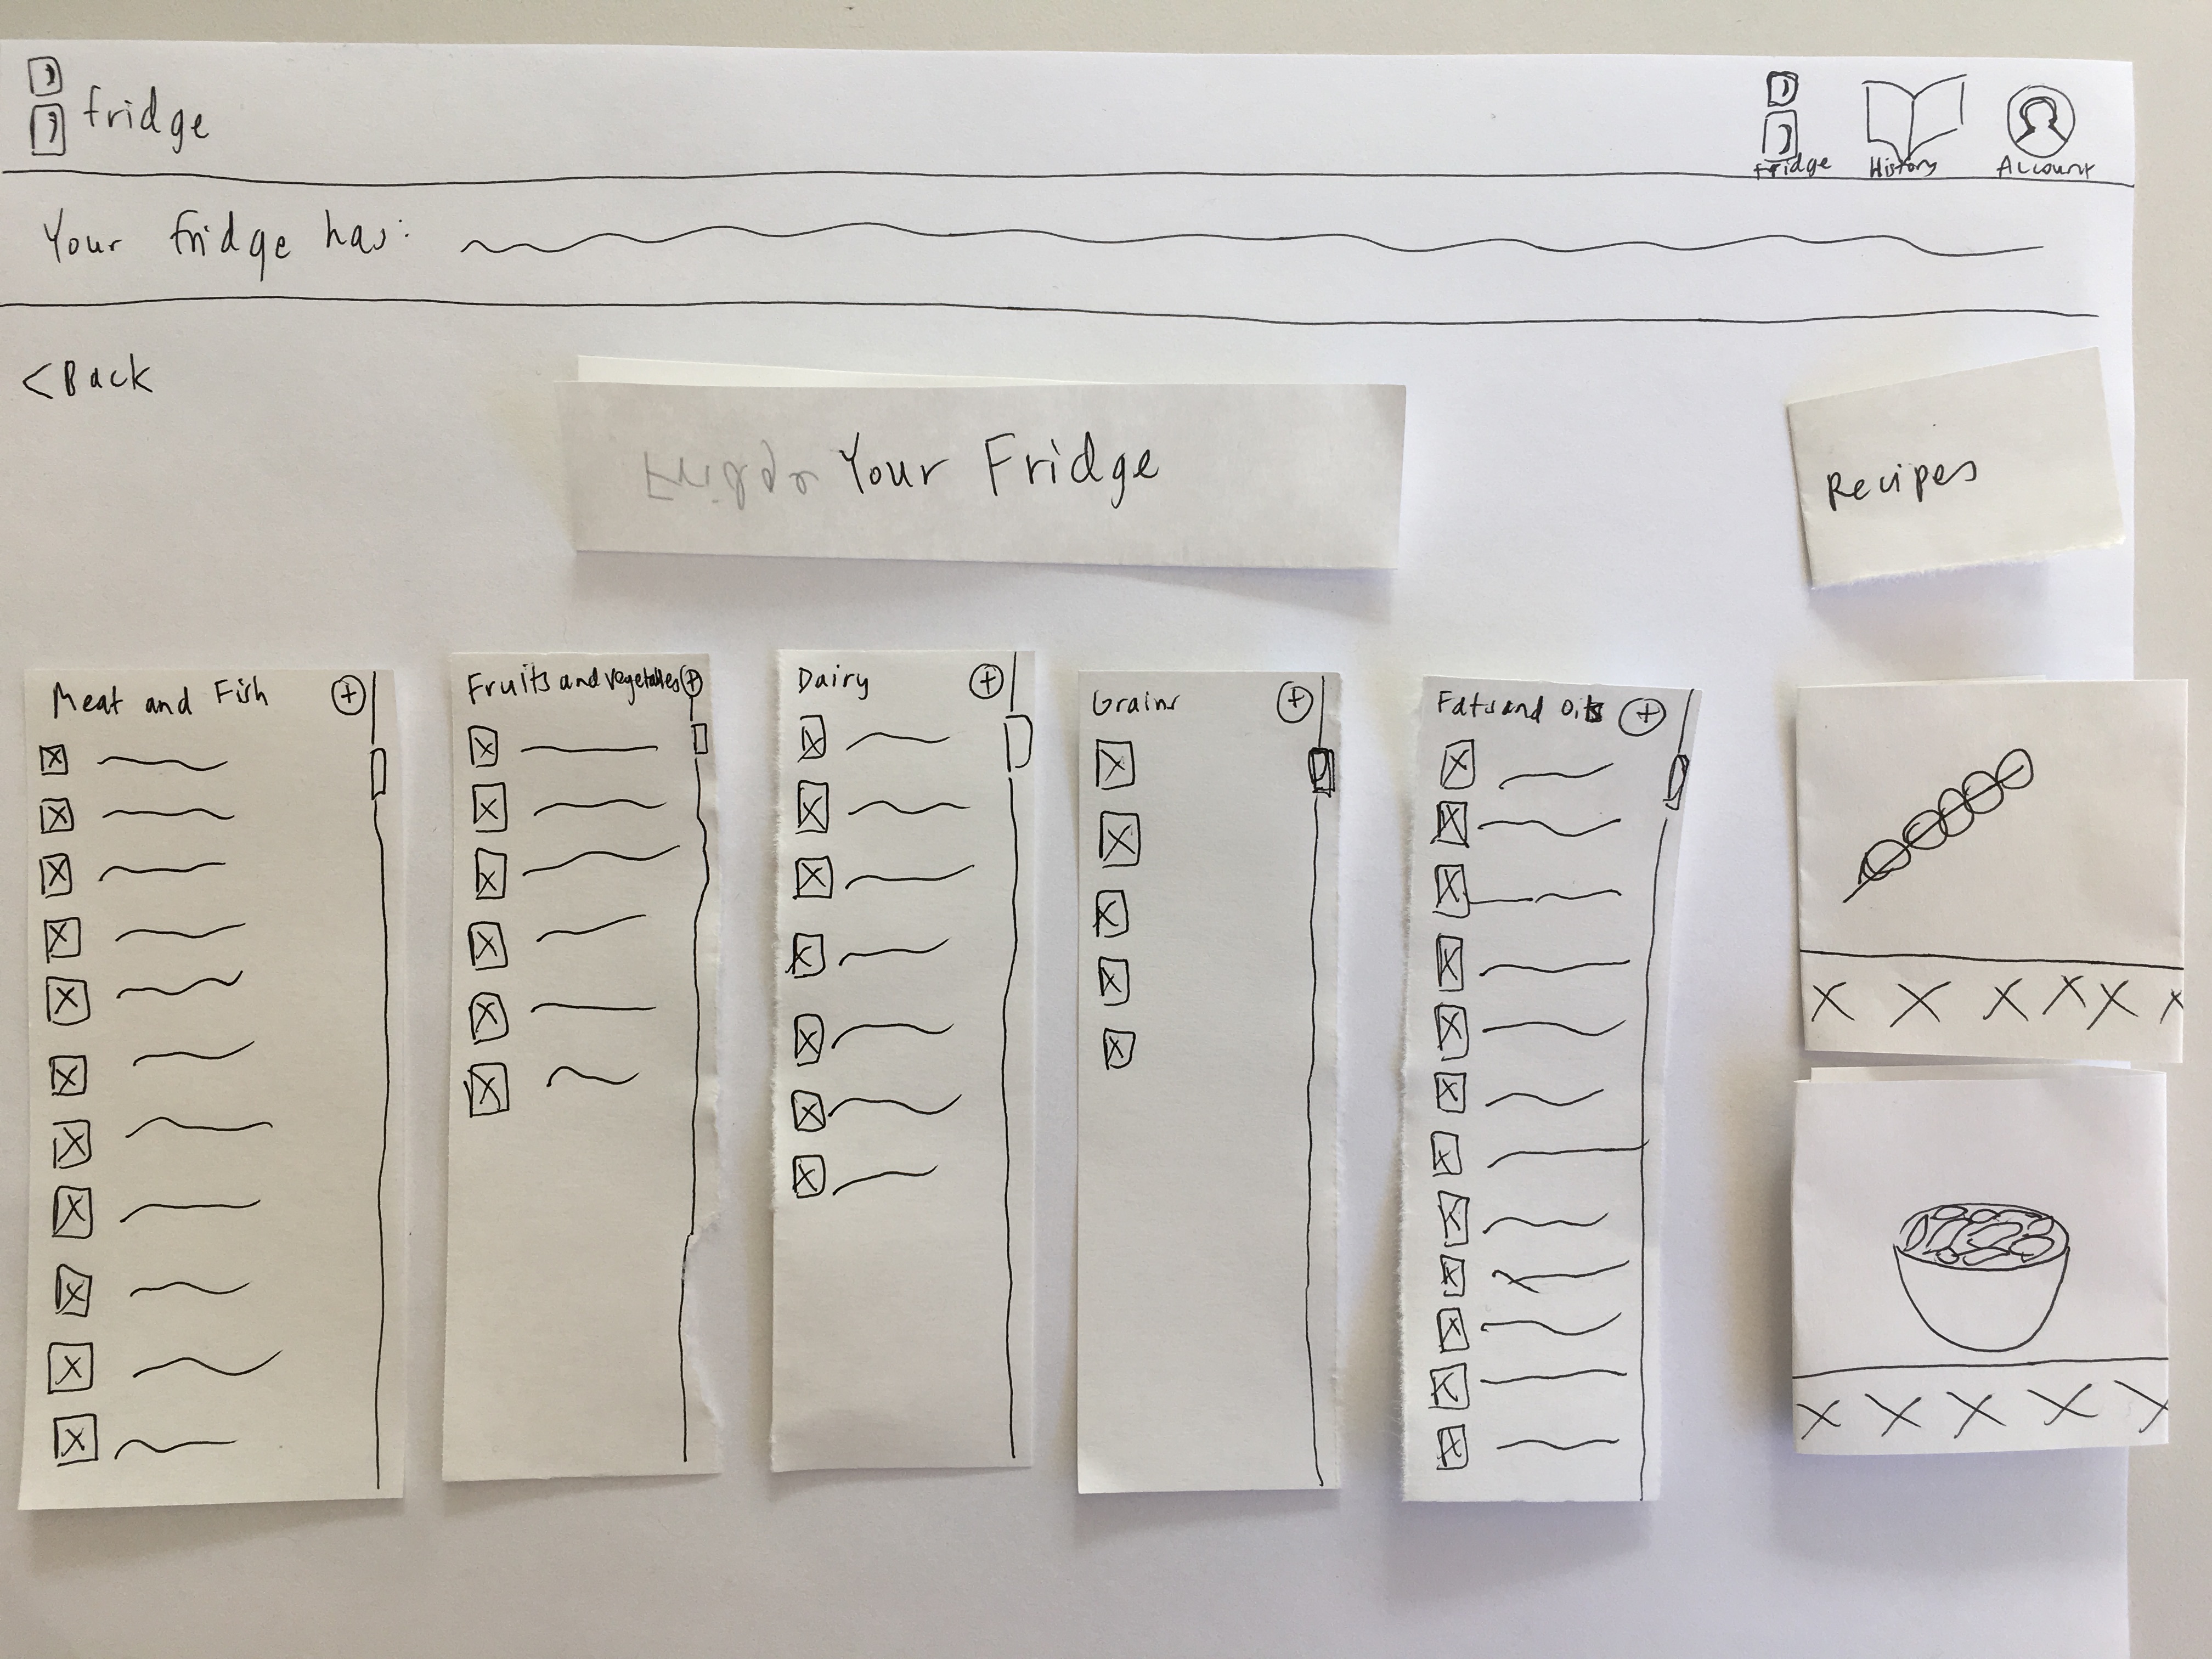 fridge
Fridge
History
Account
Your fridge has:
<Back
Fridge Your Fridge
Recipes
Meat and Fish +
Fruits and vegetables +
Dairy +
Grains +
Fats and Oils +